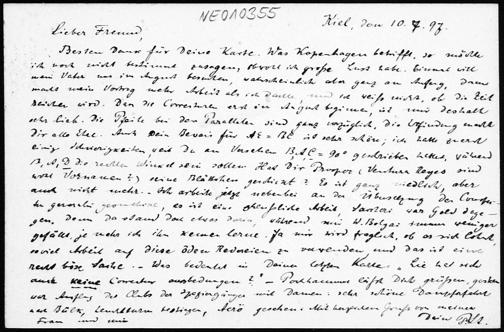 NEO10355
Kiel, den 10.7.97.
Lieber Freund,
Besten Dank für Deine Karte. Was Kopenhagen betrifft, so möchte
ich noch nicht bestimmt zusagen, obwohl ich große Lust habe. Einmal will
mein Vater uns im August besuchen, wahrscheinlich aber ganz am Anfang, dann
macht mein Vortrag mehr Arbeit als ich dachte und ich weiß nicht, ob die Zeit
reichen wird. Daß die Correcturen erst im August beginnen, ist mir deshalb
sehr lieb. Die Pfeile bei den Parallelen sind ganz vorzüglich, die Erfindung macht
Dir alle Ehre. Auch Dein Beweis für AE = BE ist sehr schön; ich hatte zuerst
einige Schwierigkeiten, weil Du aus Versehen BAC = 90° geschrieben hattest, während
B, A, D die rechten Winkel sein sollen. Hat Dir
wohl Vornamen?) seine Blättchen geschickt? Es ist ganz niedlich, aber
auch nicht mehr. Ich arbeite jetzt nebenbei an der Übersetzung des
es ist eine scheußliche Arbeit,
gen, denn da stand doch etwas darin, während mir W. Bolyai immer weniger
gefällt, je mehr ich ihn kennen lerne. Ja mir wird fraglich, ob es sich lohnt,
soviel Arbeit auf diese öden Redereien zu verwenden und das ist eine
recht böse Sache. Was bedeutet in Deiner letzten Karte „Sie hat sich
auch keine Correctur ausbedungen?" - Pochhammer läßt Dich grüßen, gestern
war Ausfug des Clubs der Spaziergänger mit Damen: sehr schöne Dampffahrt
nach Bülk, Leuchtturm bestiegen, gesehen. Mit herzlichen Grüßen von meiner
Frau und mir
Dein